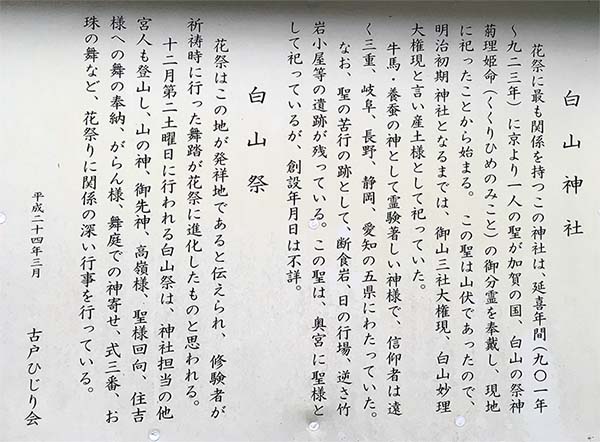 白山神社
花祭に最も関係を持つこの神社は、延喜年間(九〇一年
～九二三年)に京より一人の聖が加賀の国、白山の祭神
菊理姫命(くくりひめのみこと)の御分霊を奉戴し、現地
に祀ったことから始まる。 この聖は山伏であったので、
明治初期神社となるまでは、御山三社大権現、白山妙理
大権現と言い産土様として祀っていた。
牛馬・養蚕の神として霊験著しい神様で、信仰者は遠
く三重、岐阜、長野、静岡、愛知の五県にわたっていた。
なお、聖の苦行の跡として、断食岩、日の行場、逆さ竹
岩小屋等の遺跡が残っている。この聖は、奥宮に聖様と
して祀っているが、創設年月日は不詳。
白山祭
花祭はこの地が発祥地であると伝えられ、修験者が
祈祷時に行った舞踏が花祭に進化したものと思われる。
十二月第二土曜日に行われる白山祭は、神社担当の他
宮人も登山し、山の神、御先神、高嶺様、聖様回向、住吉
様への舞の奉納、がらん様、舞庭での神寄せ、式三番、お
珠の舞など、花祭りに関係の深い行事を行っている。
平成二十四年三月
古戸ひじり会